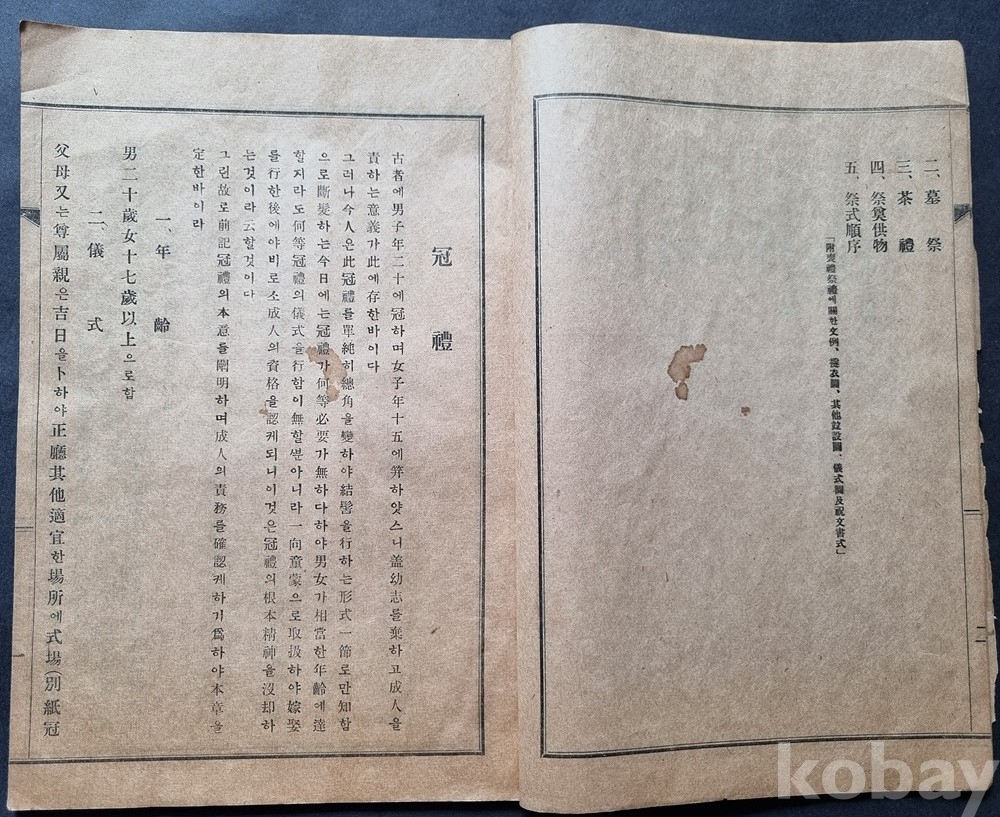 二、墓祭
三、茶禮
四、祭奠供物
五、祭式順序
「附喪禮祭禮에關한文例、其他設圖、儀式圖及祝文書式」
二
冠禮
古者에男子年二十에冠하며女子年十五에笄하얏스니盖幼志를棄하고成人을
責하는意義가此에存한바이다
그러나今人은此冠禮를單純히總角을變하야結髻을行하는形式一節로만知함
으로斷髮하는今日에는冠禮가何等必要가無하다하야男女가相當한年齡에達
할지라도何等冠禮의儀式을行함이無할뿐아니라一向童蒙으로取扱하야嫁娶
를行한後에야비로소成人의資格을認케되니이것은冠禮의根本精神을沒却하
는것이라云할것이다
그런故로前記冠禮의本意를闡明하며成人의責務를確認케하기爲하야本章을
定한바이라
一、年齡
男二十歲女十七歲以上으로함
二、儀式
父母又는尊屬親은吉日을卜하야正廳其他適宜한場所에式場(別紙冠
kobay